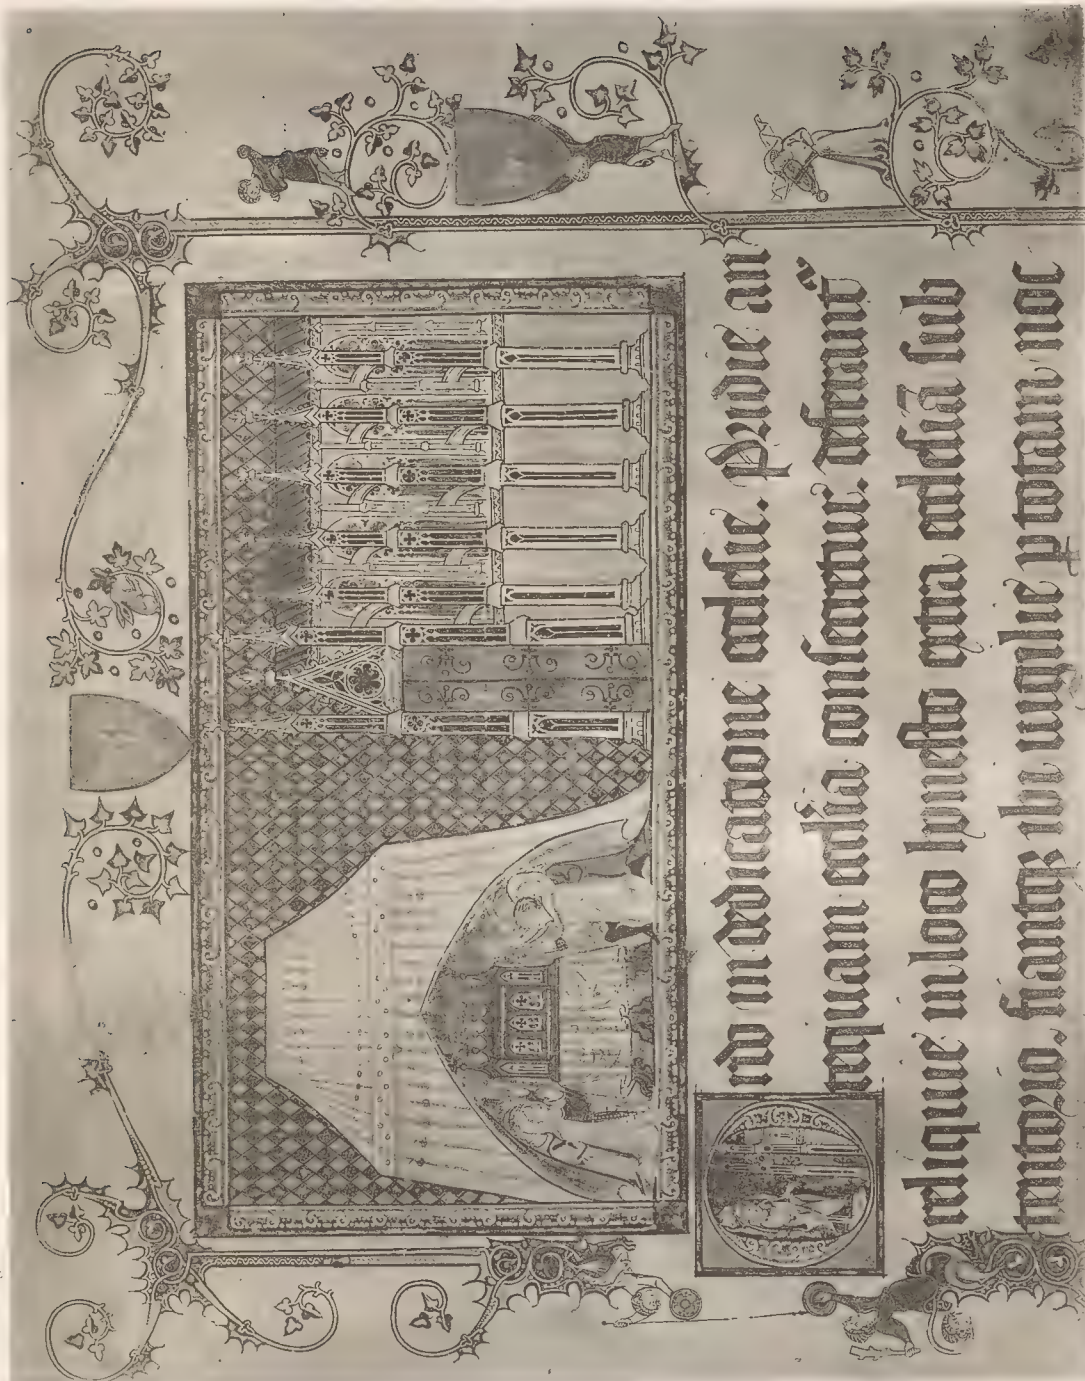 Ordo in dedicatione ecclesie. Pridie an
tequam ecclesia consecretur. deferant᷑
reliquie in loco honesto extra ecclesiā sub
tentorio. fiantque ibi uigilie ꝑ totam noc